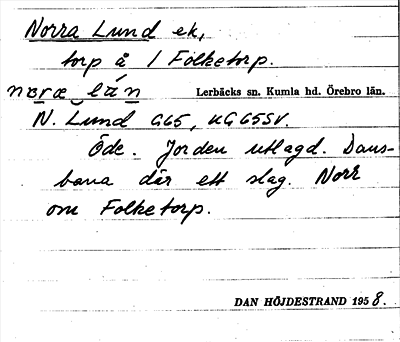 Norra Lund ek,
torp å 1 Folketorp.
noræ lán Lerbäcks sn. Kumla hd. Örebro län.
N. Lund G65, UG65SV.
Öde. Jorden utlagd. Dans-
bana där ett slag. Norr
om Folketorp.
DAN HÖJDESTRAND 1958.